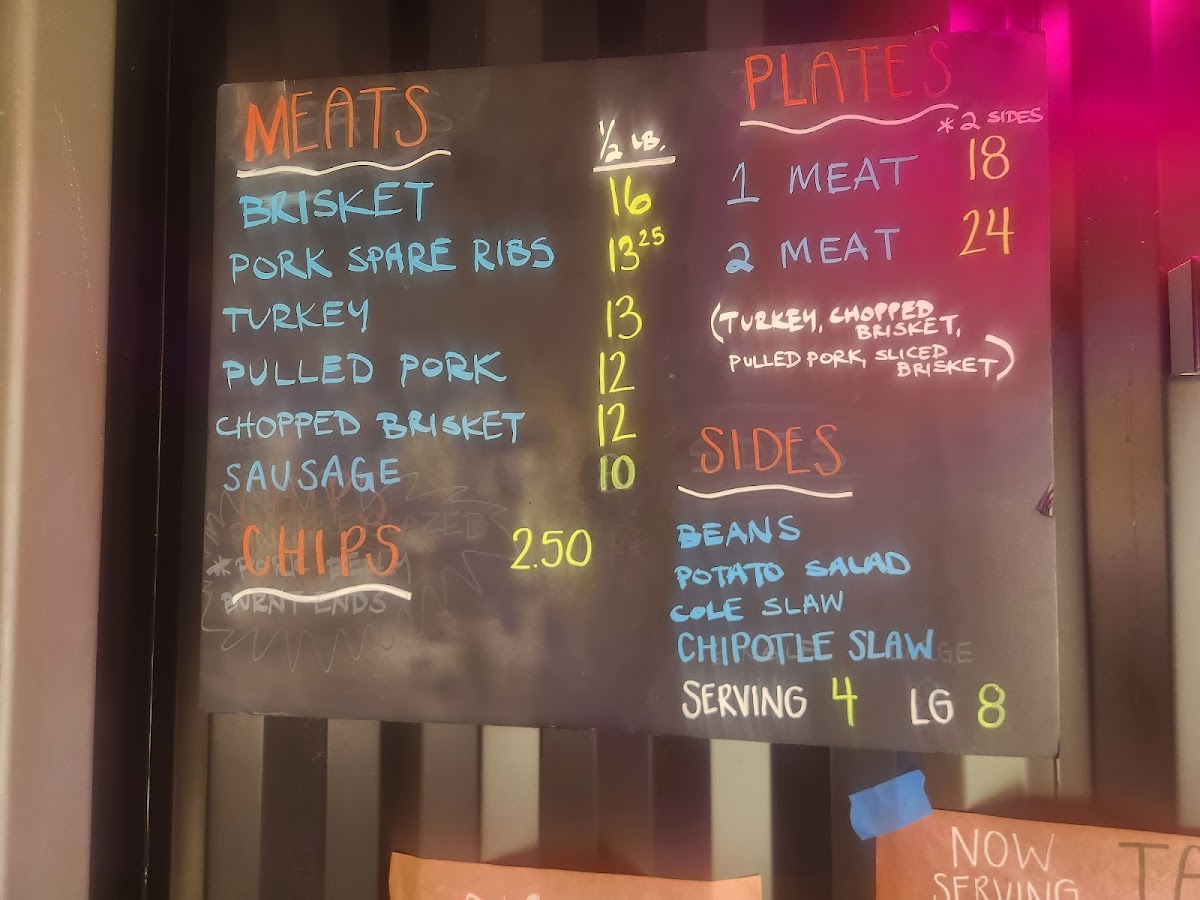 MEATS
1/2 LB.
BRISKET 16
PORK SPARE RIBS 13 25
TURKEY 13
PULLED PORK 12
CHOPPED BRISKET 12
SAUSAGE 10
CHIPS 2.50
BURNT ENDS
PLATES
*2 SIDES
1 MEAT 18
2 MEAT 24
(TURKEY, CHOPPED
BRISKET,
PULLED PORK, SLICED
BRISKET)
SIDES
BEANS
POTATO SALAD
COLE SLAW
CHIPOTLE SLAW
SERVING 4 LG 8
NOW
SERVING